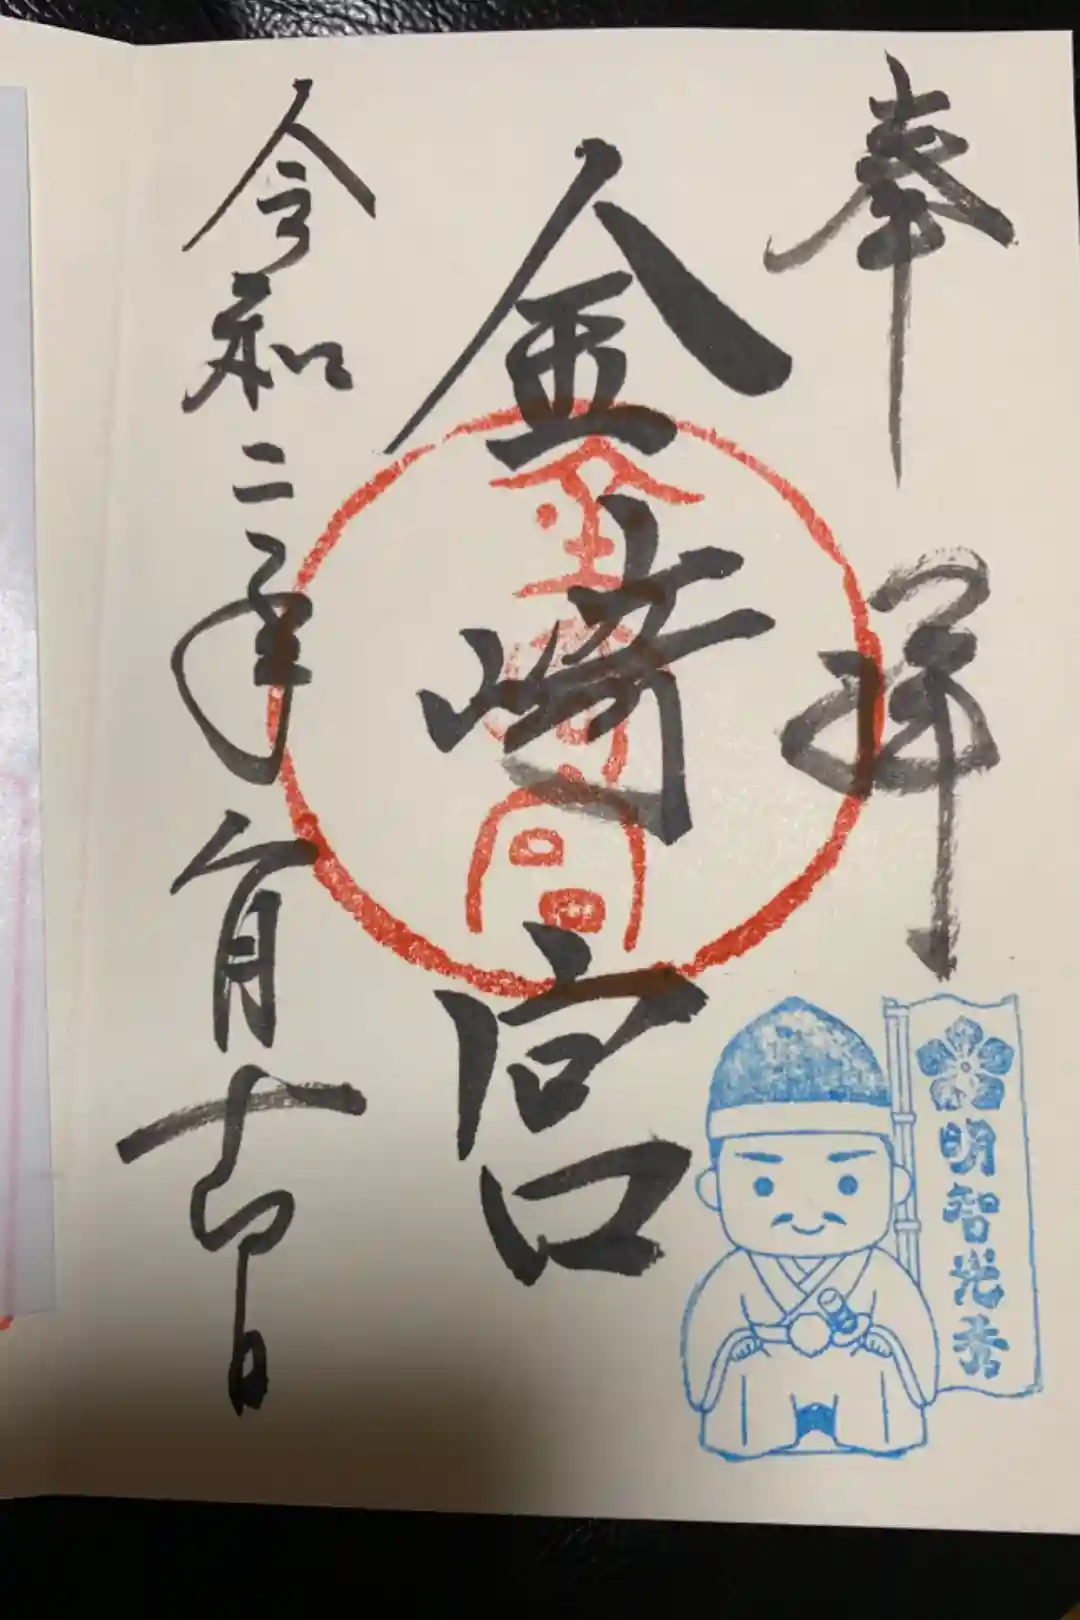 奉拝
金崎宮
金崎宮
令和二年八月十日
明智光秀